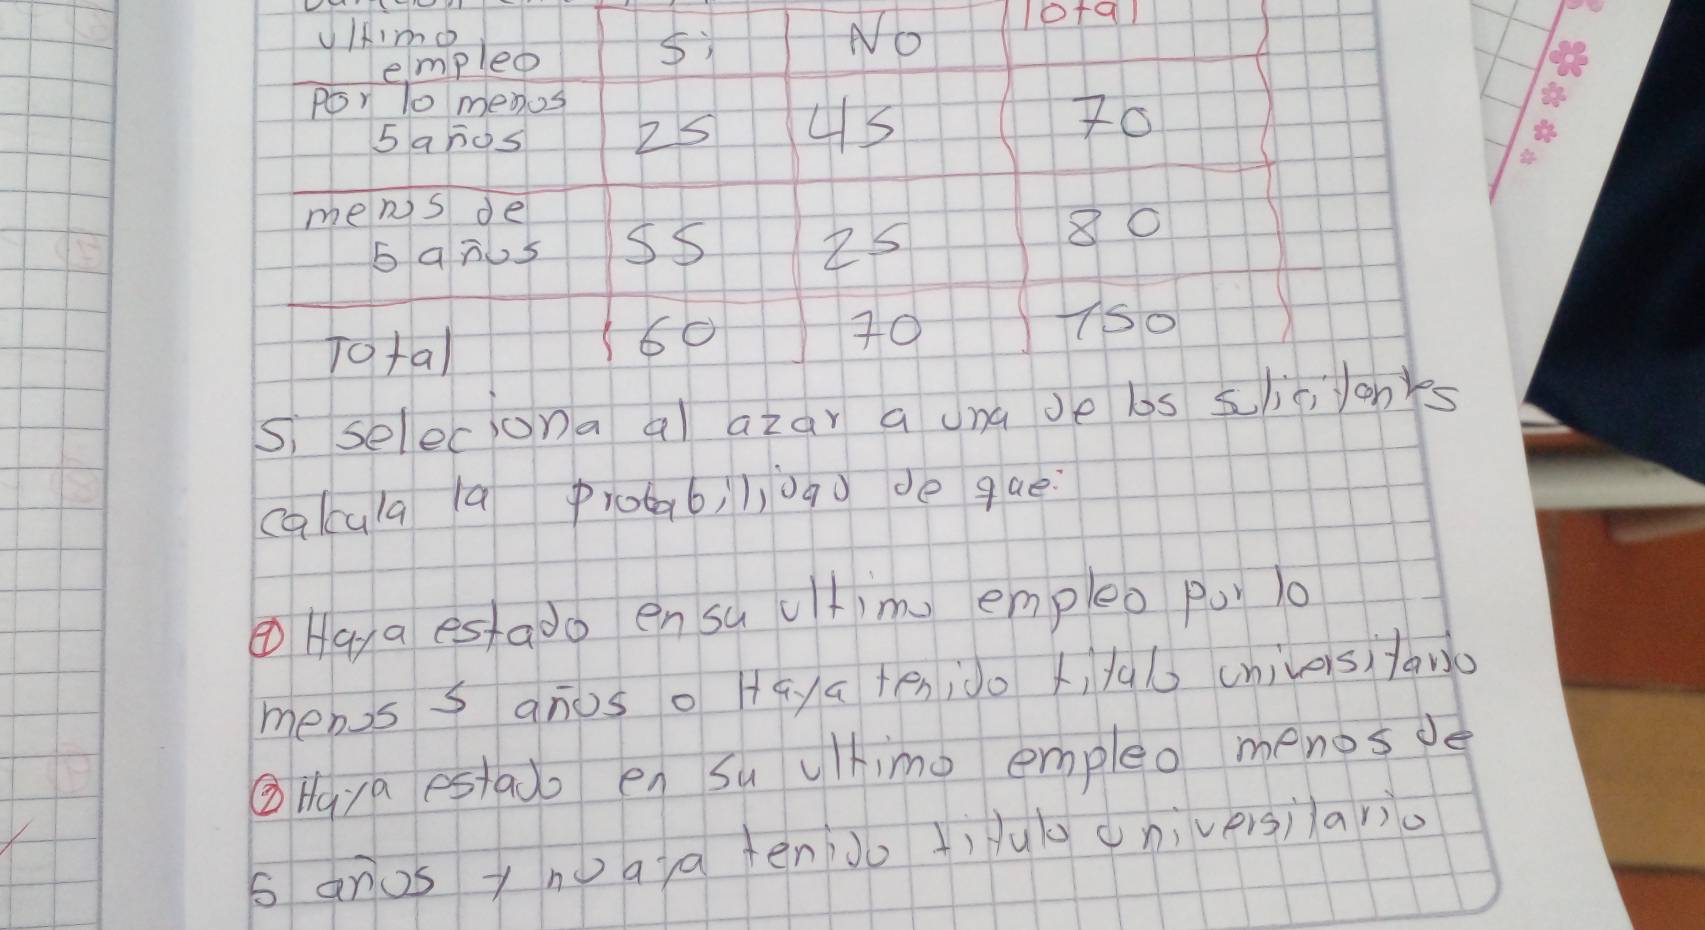 Total
ultimo
empleo Si No
Por lo menos
5 años 25 45 70
menos de
5 años 55 25 80
Total 60 70 150
Si seleciona al azar a una de los solicitantes
calcula la probabilidad de que:
① Haya estado en su ultimo empleo por lo
menos 5 años o Haya tenido titulo universitario
② Haya estado en su ultimo empleo menos de
5 años y no aya tenido titulo universitario